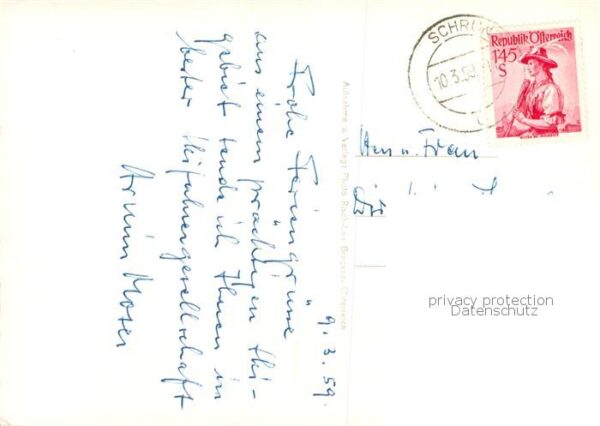 Frohe Feriengrüsse
aus einem prächtigen Ski-
gebiet sende ich Ihnen in
bester Skifahrergesellschaft
Armin Moser
9.3.59.
Aufnahme u. Verlag: Photo Risch-Lau, Bregenz, Österreich
SCHRUN
10.3.59
Republik Österreich
1'45
S
Herrn u. Frau
privacy protection
Datenschutz